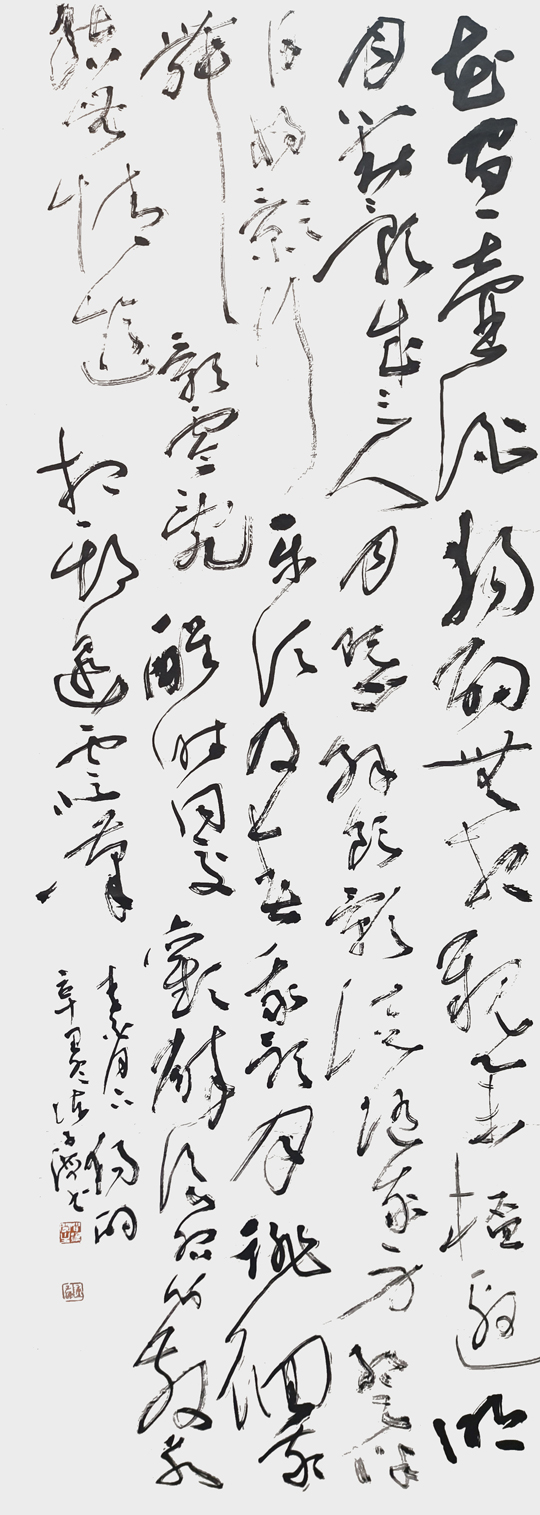 花間一壺酒獨酌無相親舉杯邀明
月對影成三人月既不解飲影徒隨我身暫伴
月將影行樂須及春我歌月徘徊我
舞影零亂醒時同交歡醉後各分散永
結無情遊相期邈雲漢
李白月下獨酌